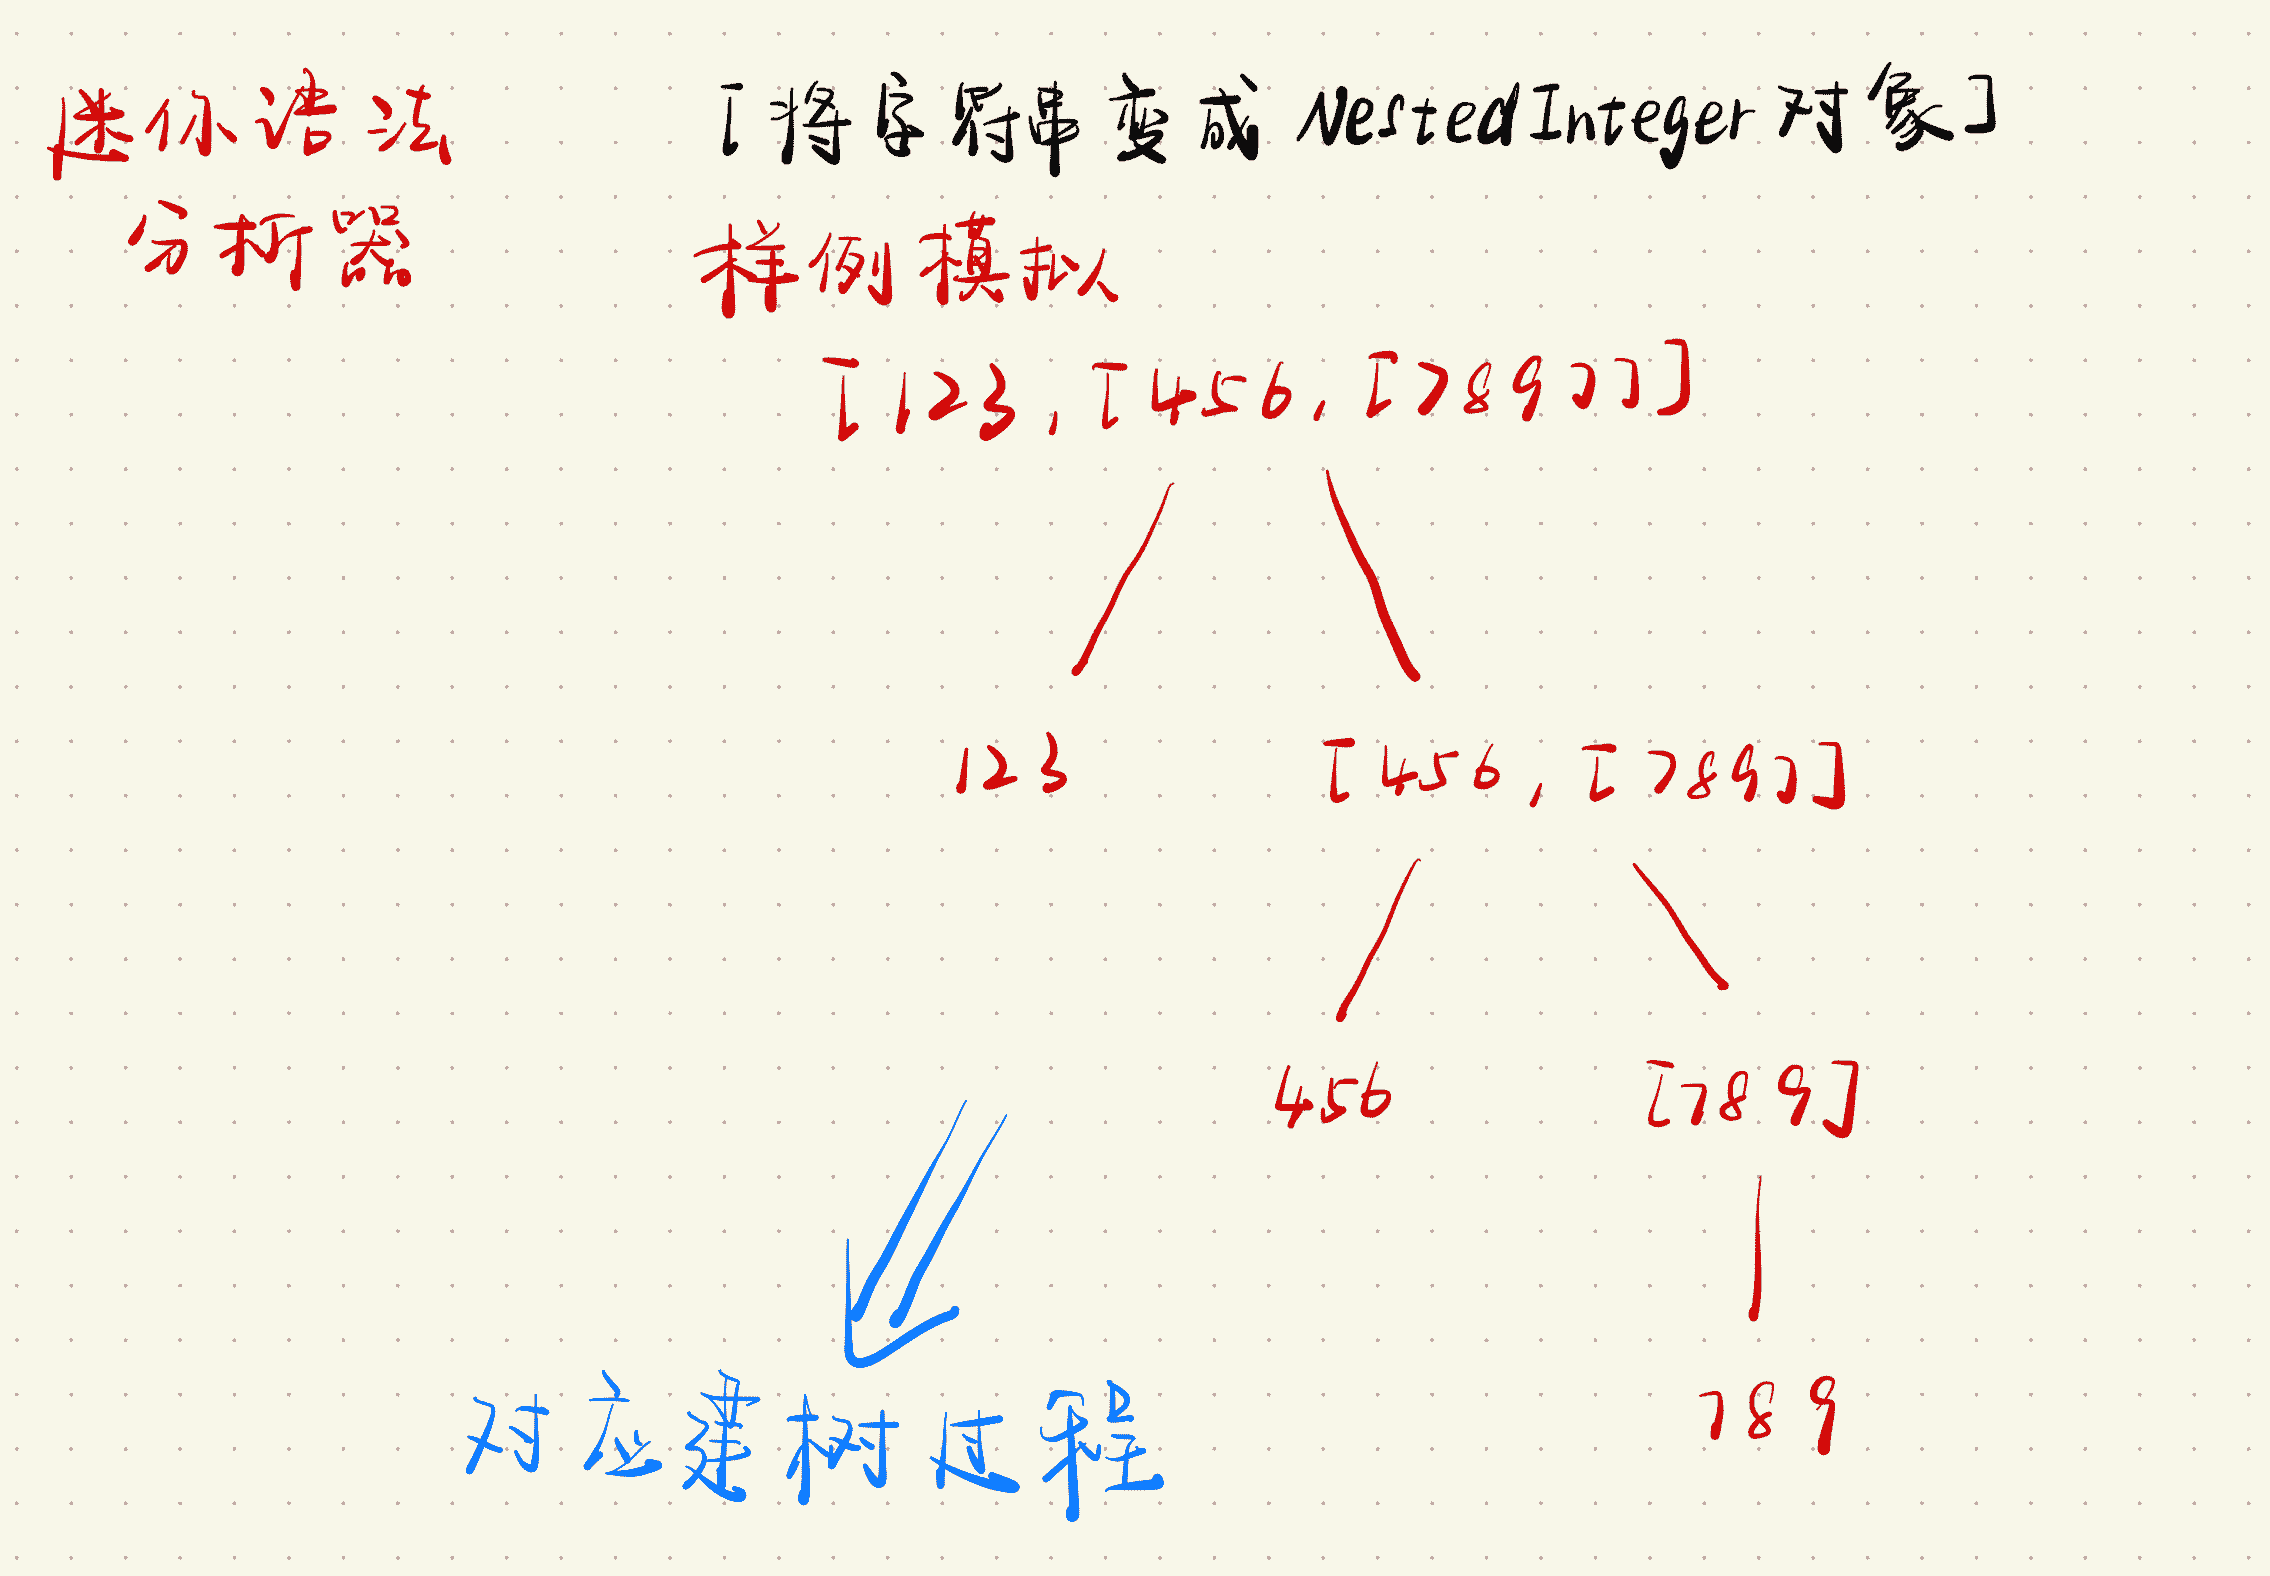 迷你语法
分析器
[将字符串变成NestedInteger对象]
样例模拟
[123,[456,[789]]]
123
[456,[789]]
456
[789]
789
对应建树过程